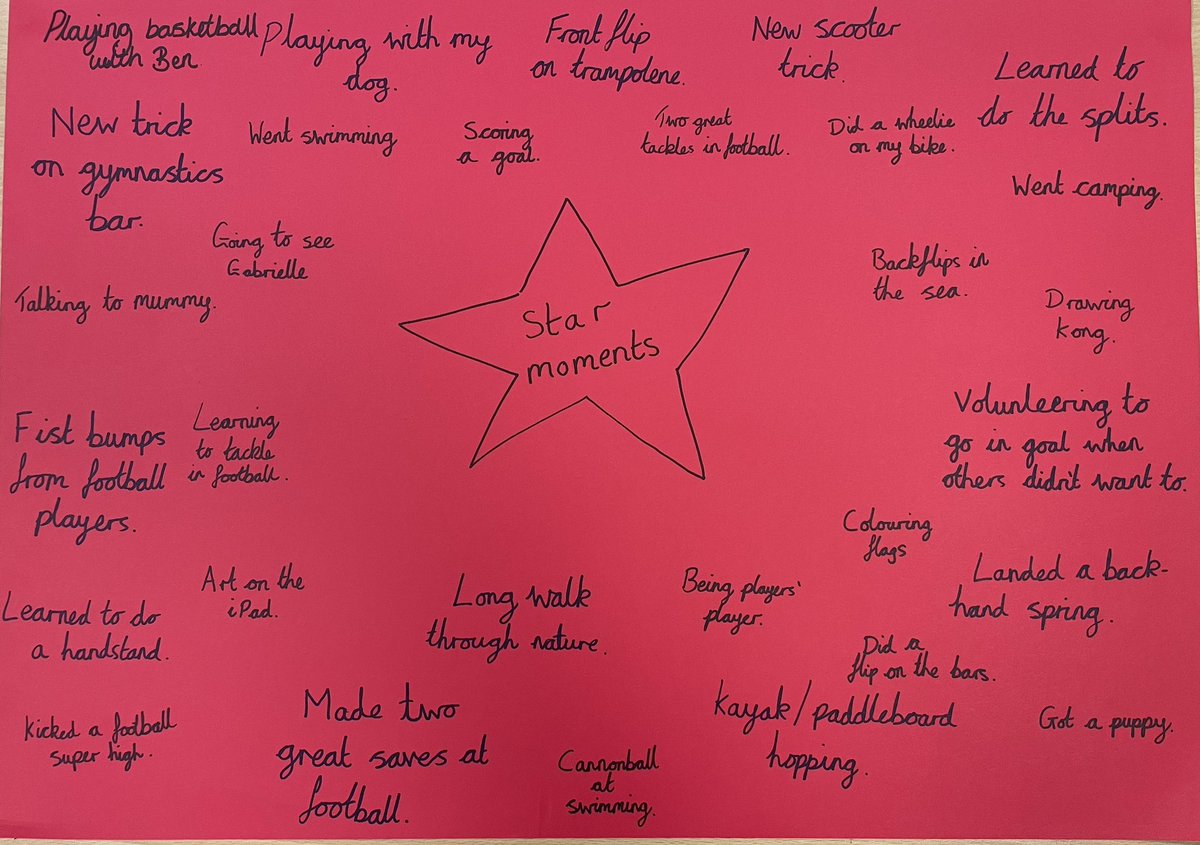 Playing basketball
with Ben.
Playing with my
dog.
Front flip
on trampolene.
New scooter
trick.
Learned to
do the splits.
New trick
on gymnastics
bar.
Went swimming
Scoring
a goal.
Two great
tackles in football.
Did a wheelie
on my bike.
Went camping.
Going to see
Gabrielle
Talking to mummy.
Star
moments
Backflips in
the sea.
Drawing
Kong.
Fist bumps
from football
players.
Learning
to tackle
in football.
Volunteering to
go in goal when
others didn't want to.
Colouring
flags
Art on the
iPad.
Learned to do
a handstand.
Long walk
through nature.
Being players'
player.
Landed a back-
hand spring.
Did a
flip on the bars.
Kicked a football
super high.
Made two
great saves at
football.
Cannonball
at
swimming.
Kayak/paddleboard
hopping.
Got a puppy.